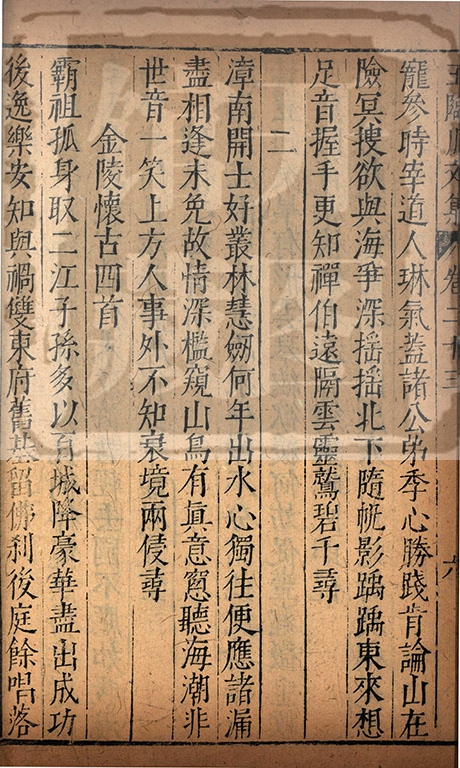 王臨川文集 卷二十三 六
寵參時宰道人琳氣蓋諸公弟季心勝踐肯論山在
險冥搜欲與海爭深搖搖北下隨帆影踽踽東來想
足音握手更知禪伯遠隔雲靈鷲碧千尋
二
漳南開士好叢林慧劒何年出水心獨往便應諸漏
盡相逢未免故情深檻窺山鳥有眞意窻聽海潮非
世音一笑上方人事外不知衰境兩侵尋
金陵懷古四首
霸祖孤身取二江子孫多以百城降豪華盡出成功
後逸樂安知與禍雙東府舊基留佛刹後庭餘唱落